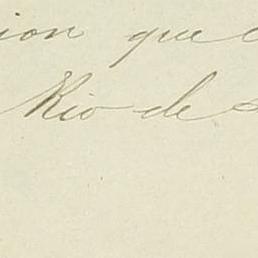 ion que
Rio de